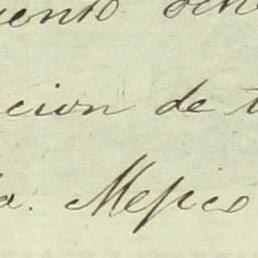 iento
cion de t
a. Mejico